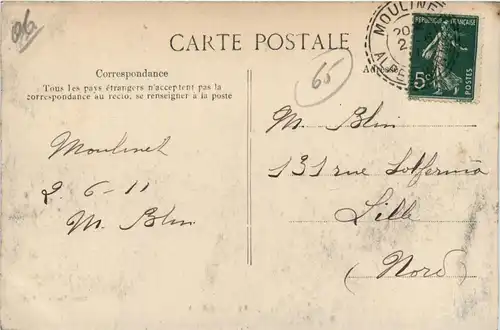 06
CARTE POSTALE
Correspondance
Tous les pays étrangers n'acceptent pas la
correspondance au recto, se renseigner à la poste
Moulinet
2-6-11
M. Blin
65
MOULINE
20
2
ALPE
REPUBLIQUE FRANÇAISE
5c
POSTES
Adresse
M. Blin
131 rue Solferino
Lille
(Nord)